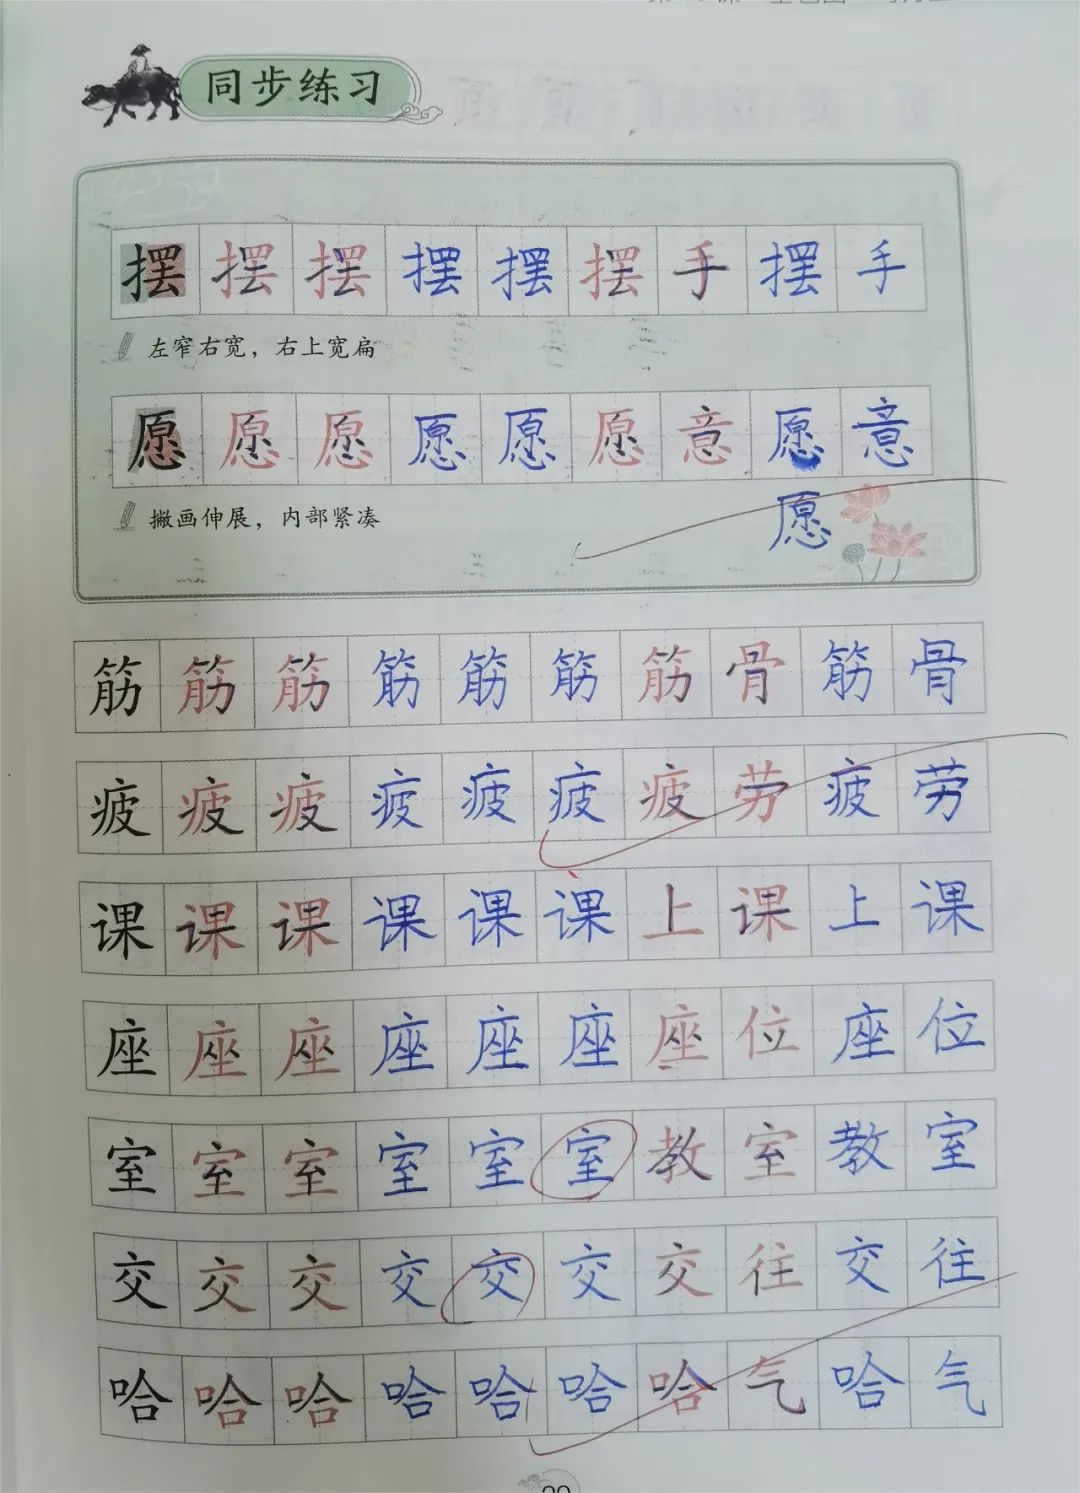 同步练习
摆摆摆摆摆摆手摆手
左窄右宽，右上宽扁
愿愿愿愿愿愿意愿意
愿
撇画伸展，内部紧凑
筋筋筋筋筋筋筋骨筋骨
疲疲疲疲疲疲疲劳疲劳
课课课课课课上课上课
座座座座座座座位座位
室室室室室室教室教室
交交交交交交交往交往
哈哈哈哈哈哈哈气哈气